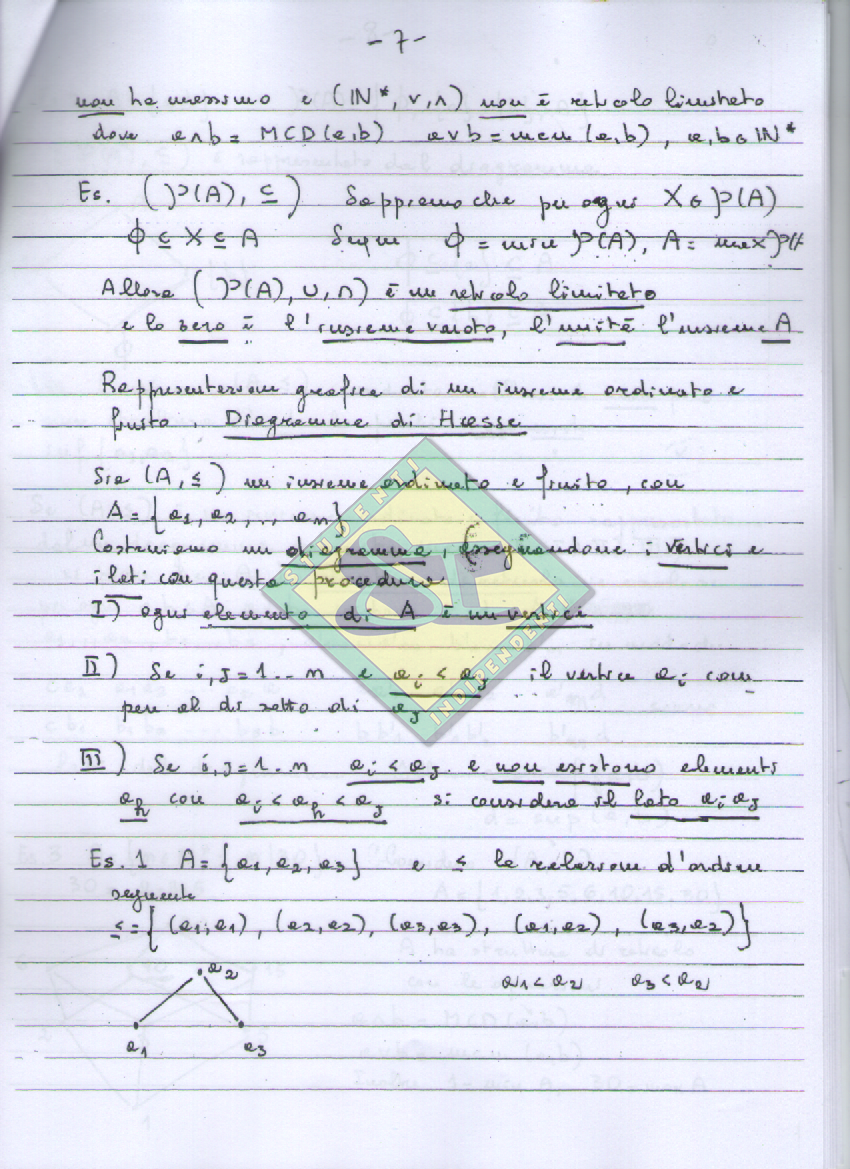 - 7 -
non ha massimo e (IN*, ∨, ∧) non è reticolo limitato
dove a∧b = MCD(a,b) a∨b = mcm (a,b) , a,b ∈ IN*
Es. (P(A), ⊆) Sappiamo che per ogni X ∈ P(A)
∅ ⊆ X ⊆ A Segue ∅ = min P(A), A = max P(A
Allora (P(A), ∪, ∩) è un reticolo limitato
e lo zero è l'insieme vuoto, l'unità l'insieme A
Rappresentazione grafica di un insieme ordinato e
finito. Diagramma di Hasse
Sia (A, ≤) un insieme ordinato e finito, con
A = {a1, a2, .., an}
Costruiamo un diagramma, assegnandone i vertici e
i lati con questa procedura
I) ogni elemento di A è un vertice
II) Se i, J = 1 .. n e ai < aJ il vertice ai com-
pare al di sotto di aJ
III) Se i, J = 1 .. n ai < aJ e non esistono elementi
ah con ai < ah < aJ si considera il lato ai aJ
Es. 1 A = {a1, a2, a3} e ≤ la relazione d'ordine
seguente
≤ = {(a1,a1), (a2,a2), (a3,a3), (a1,a2), (a3,a2)}
a2
a1 < a2 a3 < a2
a1 a3
STUDENTI
INDIPENDENTI